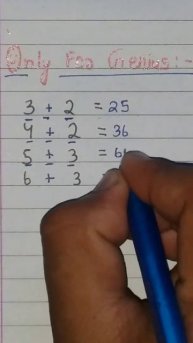 Only For Genius:-
3 + 2 = 25
4 + 2 = 36
5 + 3 = 6
6 + 3